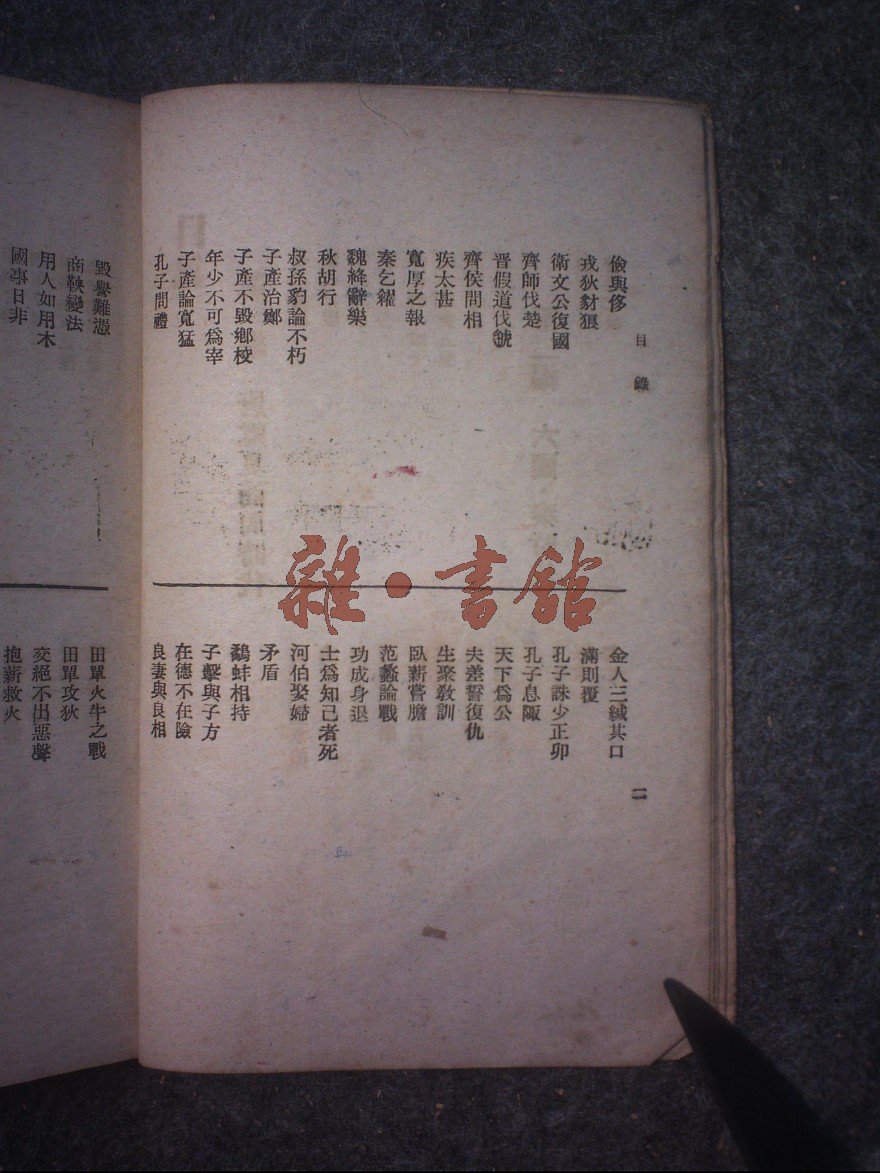 目錄
儉與侈
戎狄豺狼
衛文公復國
齊師伐楚
晉假道伐虢
齊侯問相
疾太甚
寬厚之報
秦乞糴
魏絳辭樂
秋胡行
叔孫豹論不朽
子產治鄭
子產不毀鄉校
年少不可爲宰
子產論寬猛
孔子問禮
金人三緘其口
滿則覆
孔子誅少正卯
孔子息陬
天下爲公
夫差誓復仇
生聚教訓
臥薪嘗膽
范蠡論戰
功成身退
士爲知己者死
河伯娶婦
矛盾
鷸蚌相持
子擊與子方
在德不在險
良妻與良相
二
毀譽難憑
商鞅變法
用人如用木
國事日非
田單火牛之戰
田單攻狄
交絕不出惡聲
抱薪救火
雜·書館